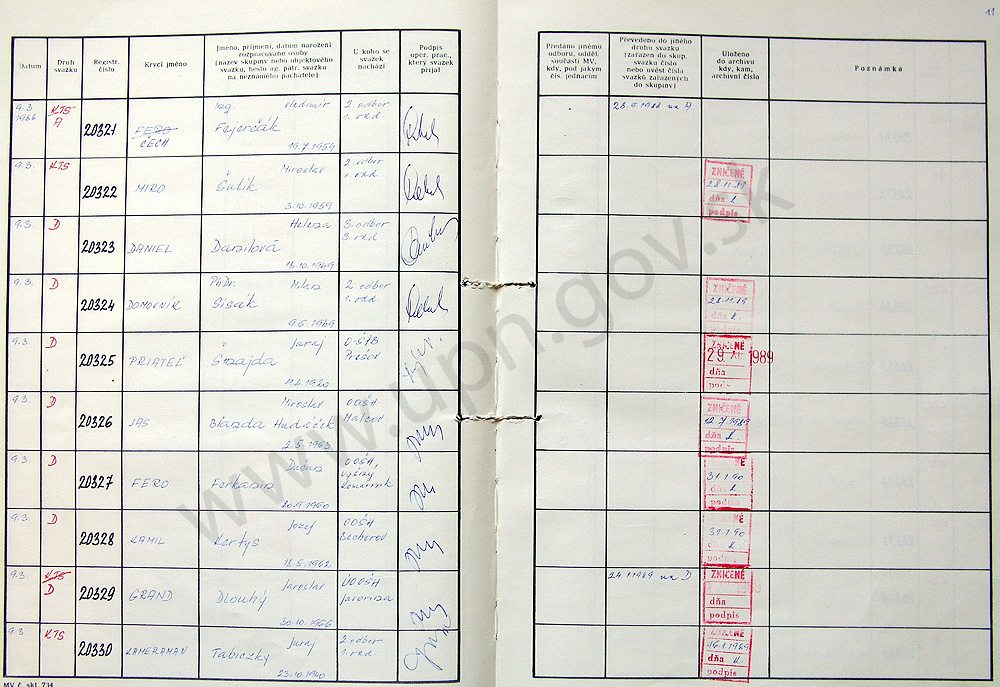 11
Datum
Druh
svazku
Registr.
číslo
Krycí jméno
Jméno, příjmení, datum narození
rozpracované osoby
(název skupiny nebo objektového
svazku, heslo ag. pátr. svazku
na neznámého pachatele)
U koho se
svazek
nachází
Podpis
oper. prac.,
který svazek
přijal
Předáno jinému
odboru, odděl.
součásti MV,
kdy, pod jakým
čís. jednacím
Převedeno do jiného
druhu svazku
(zařazen do skup.
svazku číslo
nebo uvést čísla
svazků zařazených
do skupiny)
Uloženo
do archivu
kdy, kam,
archivní číslo
Poznámka
9.3.
1988
KTS
A
20321
FERO
ČECH
Ing. Vladimír
Fejerčák
19.7.1954
2. odbor
1. rad
28.9.1988 na A
9.3.
KTS
20322
MIRO
Miroslav
Šulík
3.10.1959
2. odbor
1. rad
ZNIČENÉ
28.11.89
dňa
podpis
9.3.
D
20323
DANIEL
Helena
Danilová
18.10.1949
3. odbor
3. rad
9.3.
D
20324
DOMOVNÍK
PhDr. Milan
Sisák
9.6.1949
2. odbor
1. rad.
ZNIČENÉ
28.11.89
dňa
podpis
9.3.
D
20325
PRIATEĽ
Juraj
11.4.1920
Prešov
ZNIČENÉ
29 1989
dňa
9.3.
D
20326
JAS
Miroslav
Hudáček
2.5.1963
OOŠH
Malcov
ZNIČENÉ
12.7.1989
dňa
podpis
9.3.
D
20327
FERO
20.9.1960
OOŠH,
31.1.90
dňa
podpis
9.3.
D
20328
KAMIL
Jozef
Kertys
18.5.1962
OOŠH
31.1.90
podpis
9.3.
KTS
D
20329
GRAND
Jaroslav
Dlouhý
30.10.1966
OOŠH
Javorina
24.1.1989 na D
ZNIČENÉ
dňa
podpis
9.3.
KTS
20330
KAMERAMAN
Juraj
Tabiczky
23.10.1940
2. odbor
1. rad.
ZNIČENÉ
16.1.1989
dňa
podpis
MV č. skl. 734
www.upn.gov.sk